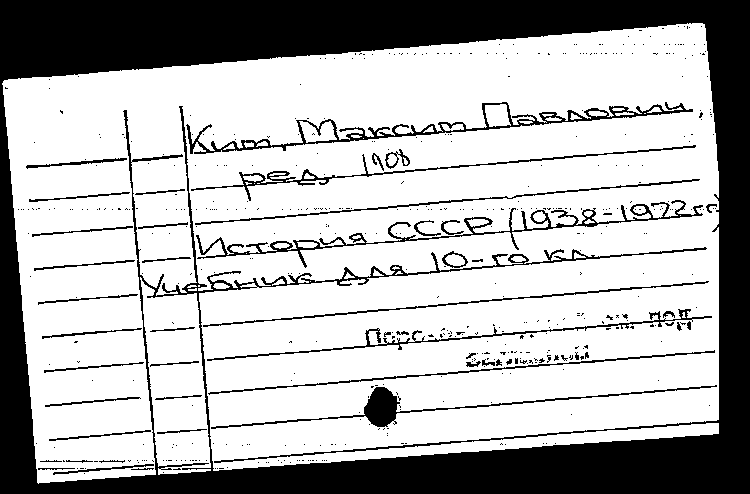 Ким, Максим Павлович,
ред. 1908
История СССР (1938-1972гг)
Учебник для 10-го кл.
под